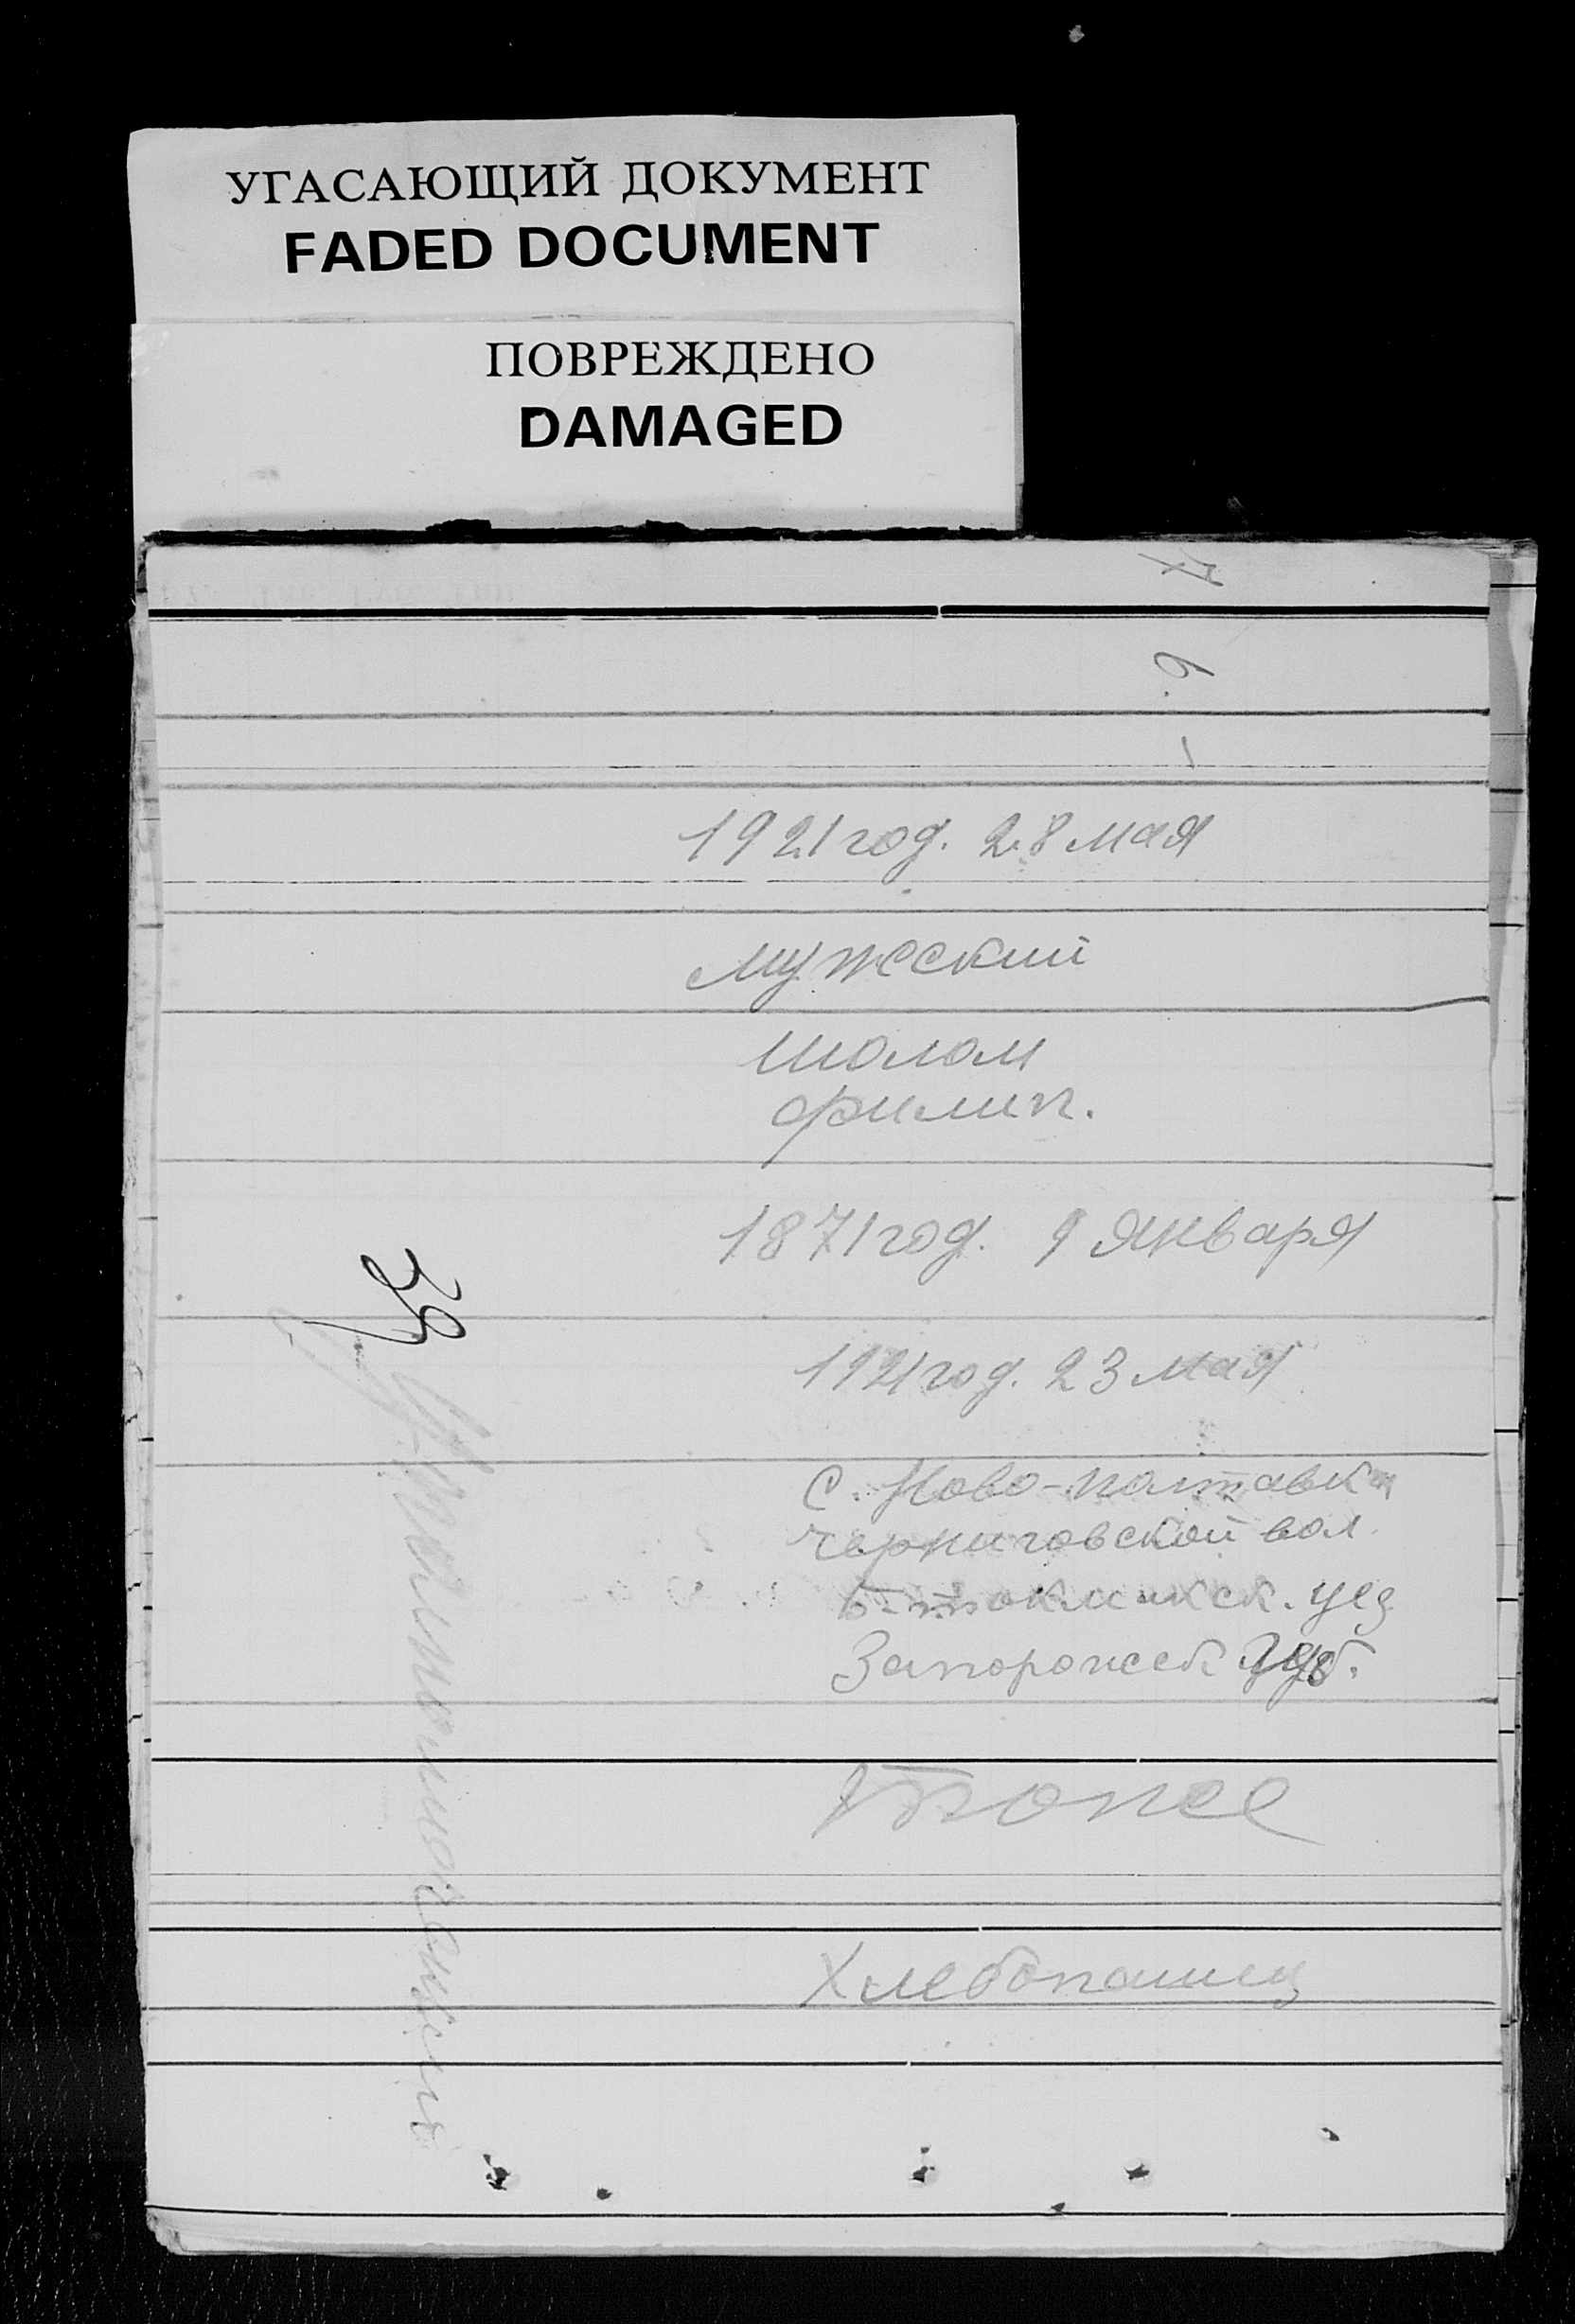 УГАСАЮЩИЙ ДОКУМЕНТ
FADED DOCUMENT
ПОВРЕЖДЕНО
DAMAGED
1921 год. 28 мая
мужеский
шолом
филип.
1871 год. 9 января
1921 год. 23 мая
с. Ново-полтавки
черниговской вол.
Б-токмакск. уез
Запорожск. губ.
тоже
Хлебопашец